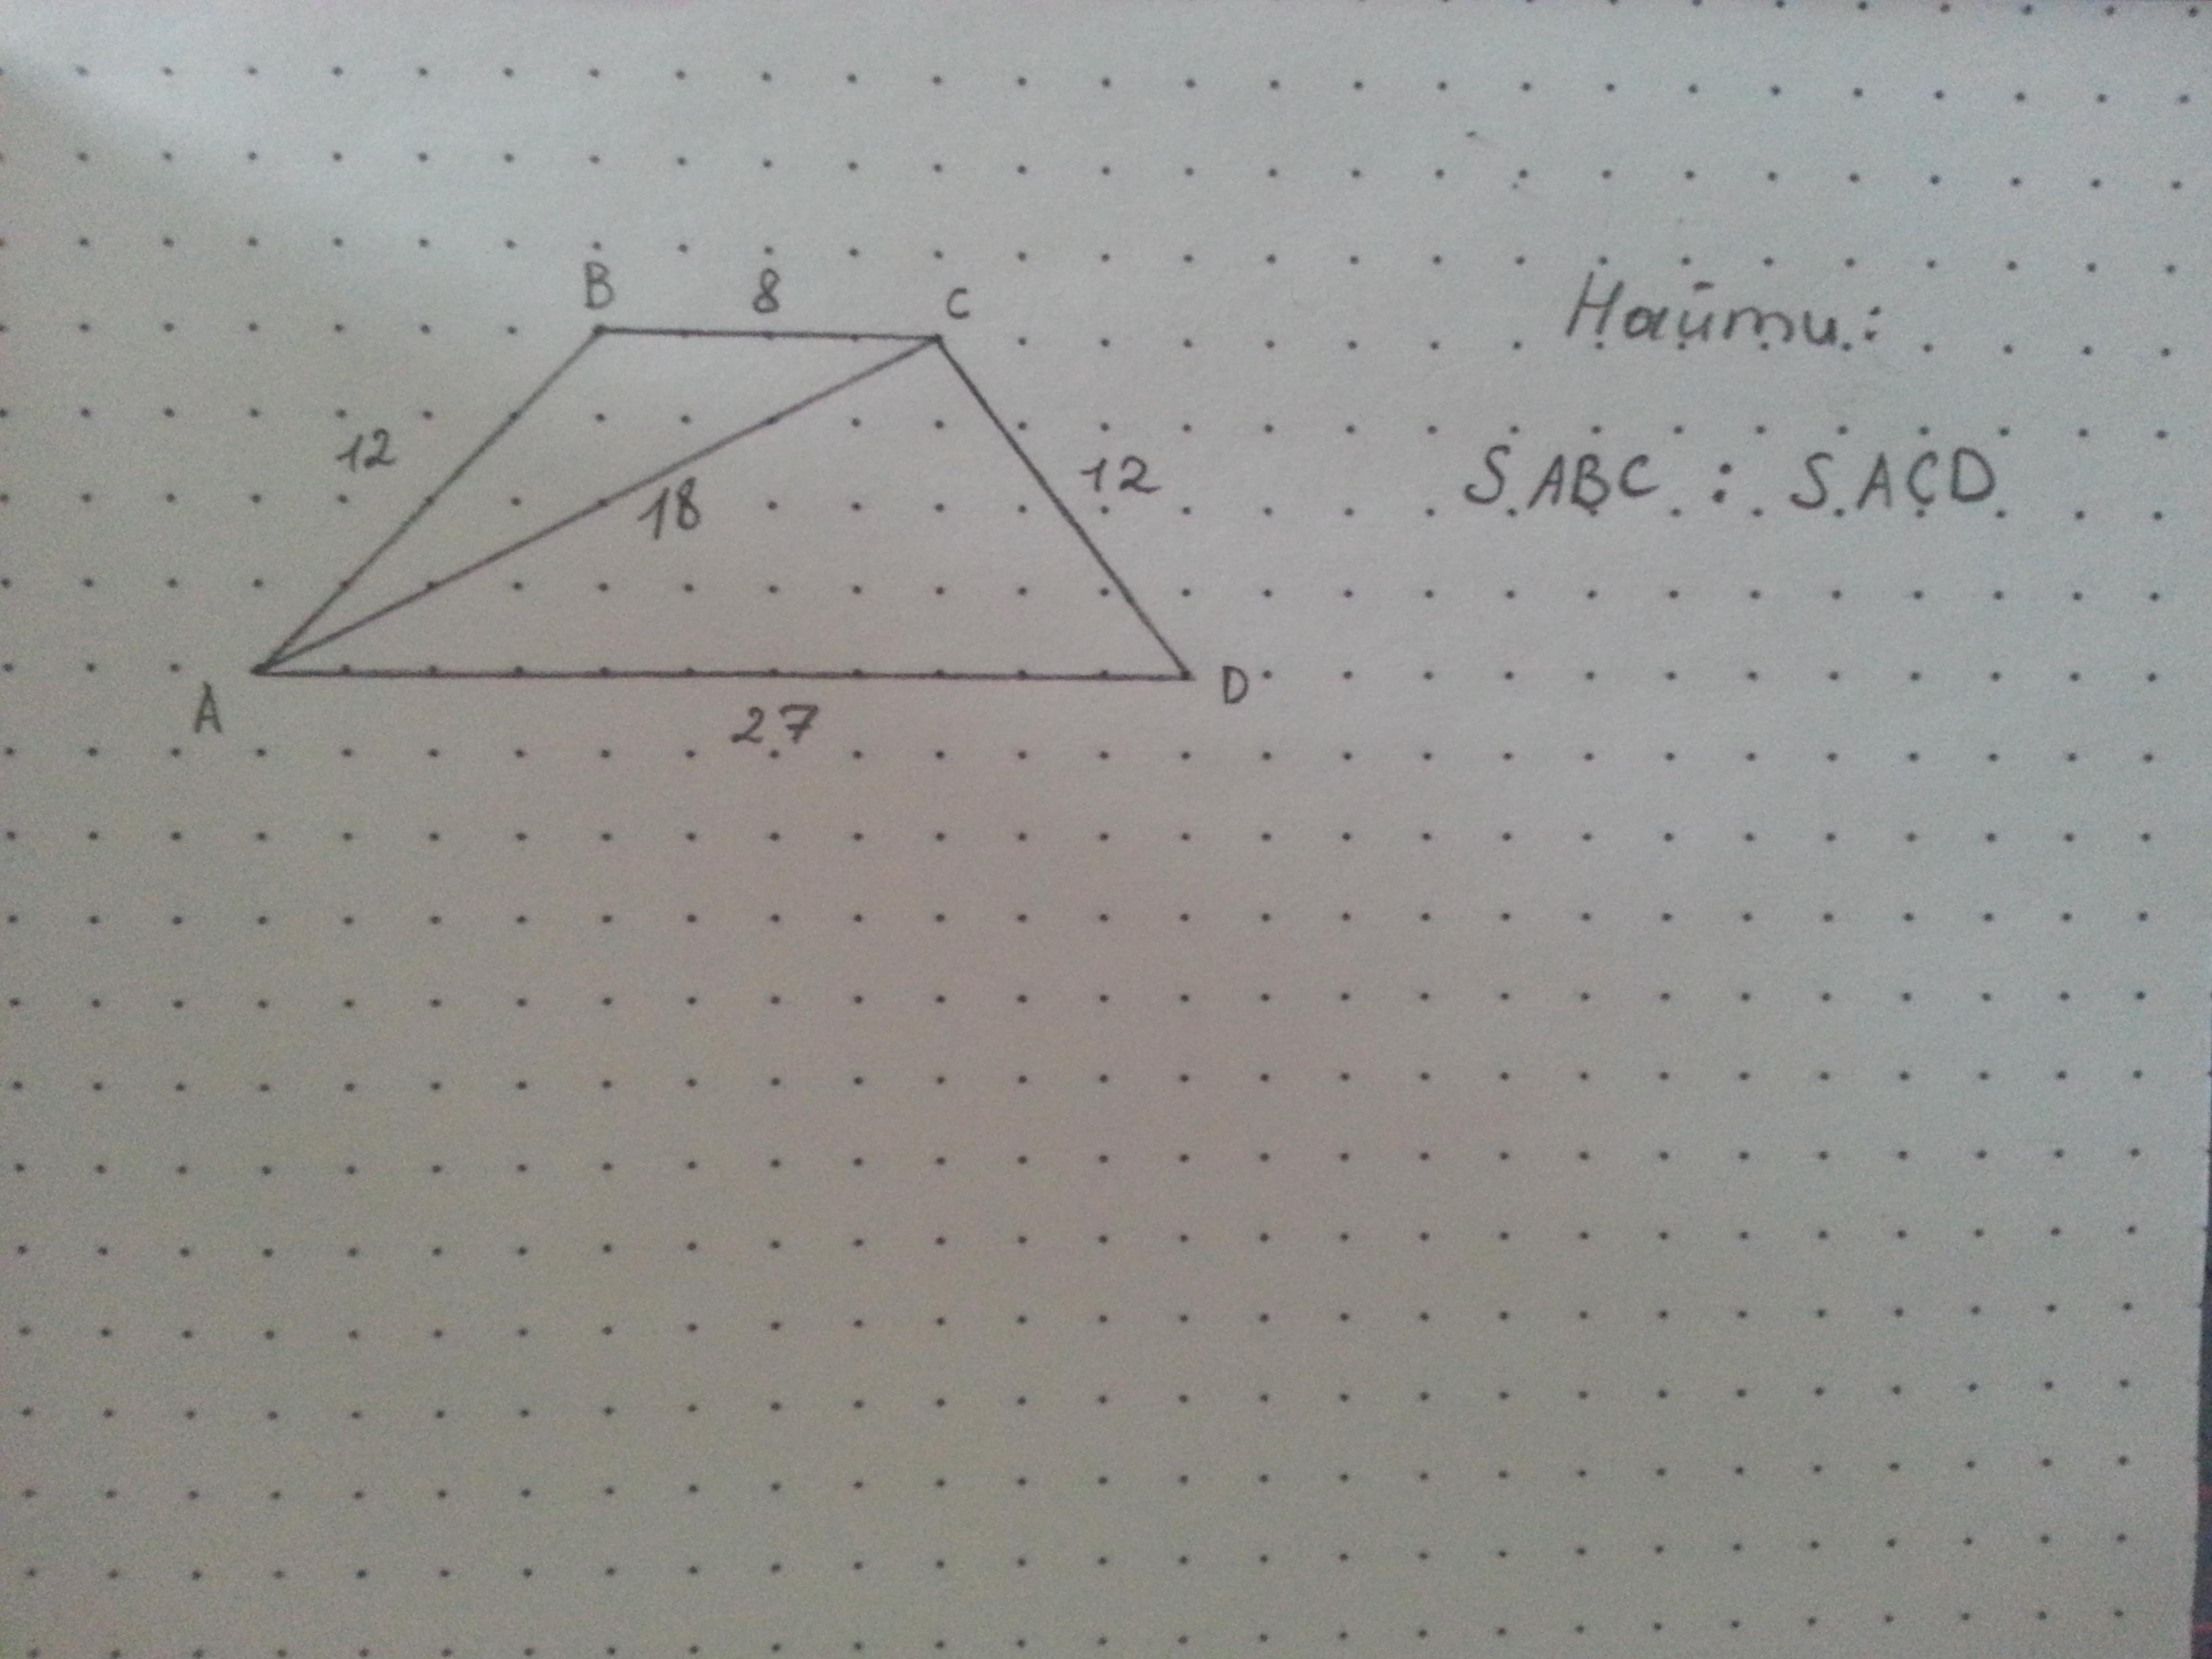 B 8 C
Найти:
12 18 12
S ABC : S ACD
A 27 D